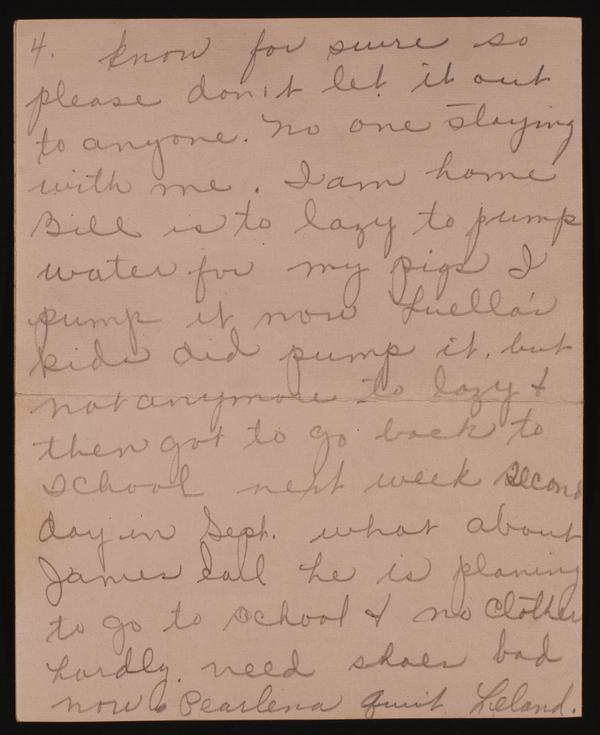 4. know for suire so
please don't let it out
to anyone. No one staying
with me. I am home
Bill is to lazy to pump
water for my pigs I
pump it now Luella's
kids did pump it. but
not anymore to lazy &
then got to go back to
school next week second
day in Sept. what about
James Earl he is planing
to go to school & no clothes
hardly. need shoes bad
now. Pearlena quit Leland.